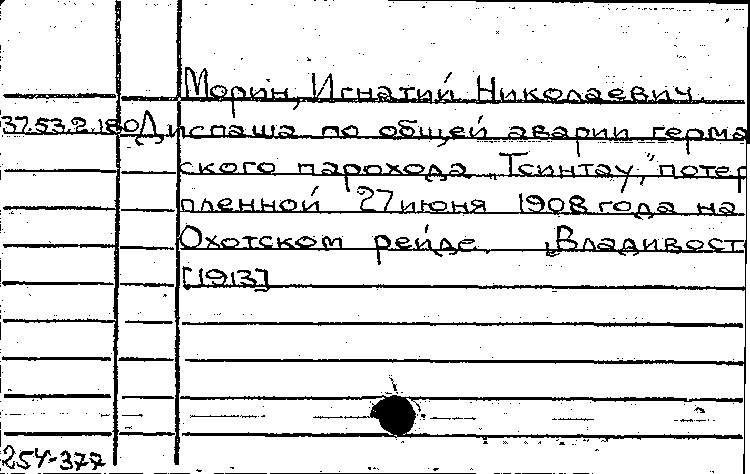 Морин, Игнатий Николаевич.
37.53.2.180 Диспаша по общей аварии герма
ского парохода „Тсинтау," потер
пленной 27 июня 1908 года на
Охотском рейде. „Владивост
[1913]
254-377